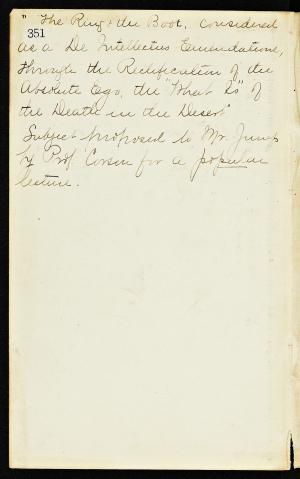 351
" The Ring & the Book, considered
as a De Intellectus Emendatione,
through the Rectification of the
Absolute Ego, the "What Is" of
the Death in the Desert"
Subject proposed to Mr. Jump
by Prof Corson for a popular
lecture.